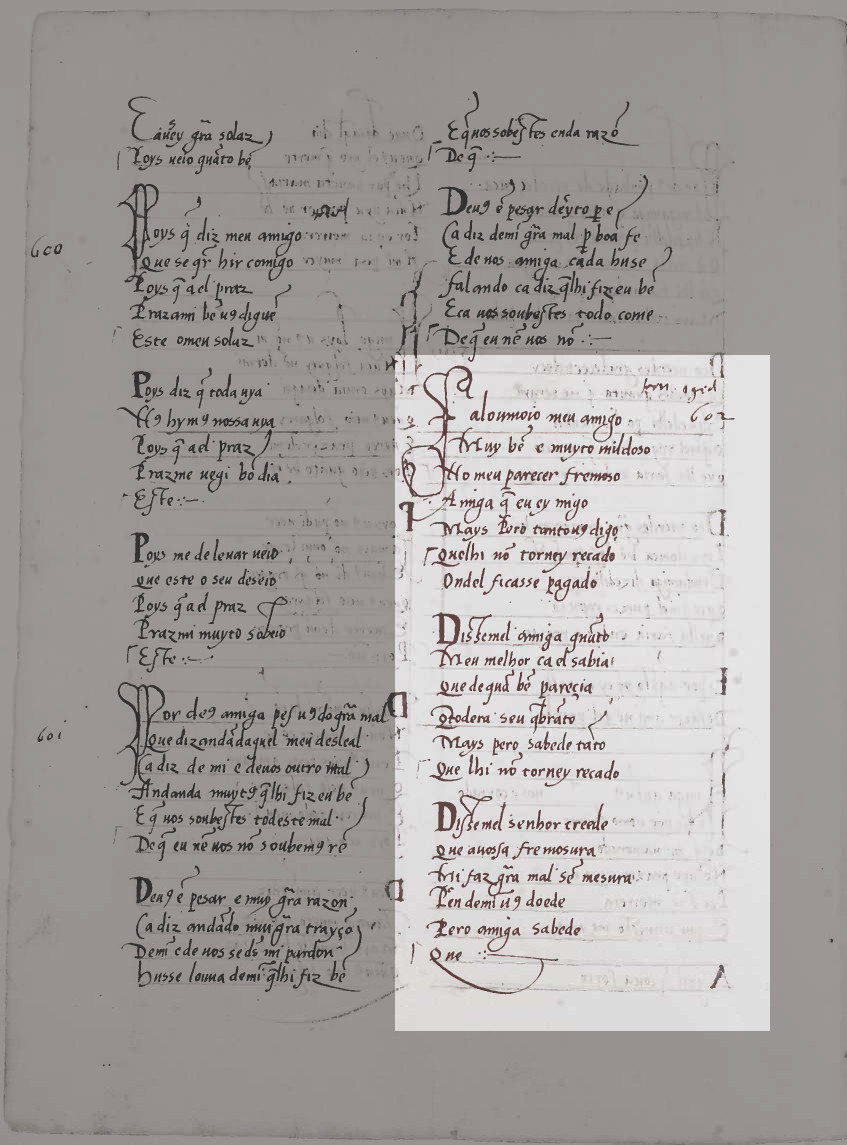 Eav̄ey gr̄a solaz
Poys ueio quāto bē
Poys q̄ diz meu amigo
600
Que se qr̄ hir comigo
Poys q̄ a el praz
Praz ami bē uꝯ digue
Este o meu solaz
Poys diz q̄ toda uya
Poys q̄ a el praz
Praz me ue gi bō dia
Este :~
Poys me de leuar ueio
Que este o seu deseio
Poys q̄ a el praz
Praz mi muyto sobeio
Este :~
Por deꝯ amiga pes uꝯ do gr̄a mal
601
Que diz andā daquel meu desleal
Ca diz de mi e de uos outro mal
Andando muytꝯ q̄lhi fiz eu bē
E q̄ uos soubestes todeste mal
De q̄ eu nē uos nō soubemꝯ rē
Deuꝯ ē pesar e muy gr̄a razon
Ca diz andādo muj gr̄a trayçō
De mī e de uos se ds̄ mi pardon
husse louua de mi q̄lhi fiz bē
E q̄ uos sobestes enda razō
De q̄ :~
Deuꝯ ē pesar
Ca diz de mi gr̄a mal ꝑ boa fe
E de uos amiga cada huse
falando ca diz q̄lhi fiz eu bē
E ca uos soubestes todo come
De q̄ eu nē uos nō :~
602
Falou moio meu amigo
Muy bē e muyto mildoso
No meu parecer fremoso
Amiga q̄ eu ey migo
Mays Pero tanto uꝯ digo
Que lhi nō torney recado
Ondel ficasse pagado
Dissemel amiga quāto
Meu melhor ca el sabia
Que de quā bē parecia
Q̄ todera seu q̄brāto
Mays pero sabede tāto
Que lhi nō torney recado
Dissemel senhor creede
Que a uossa fremosura
Mi faz gr̄a mal sē mesura
Pēn de mi uꝯ doede
Pero amiga sabede
Que :~